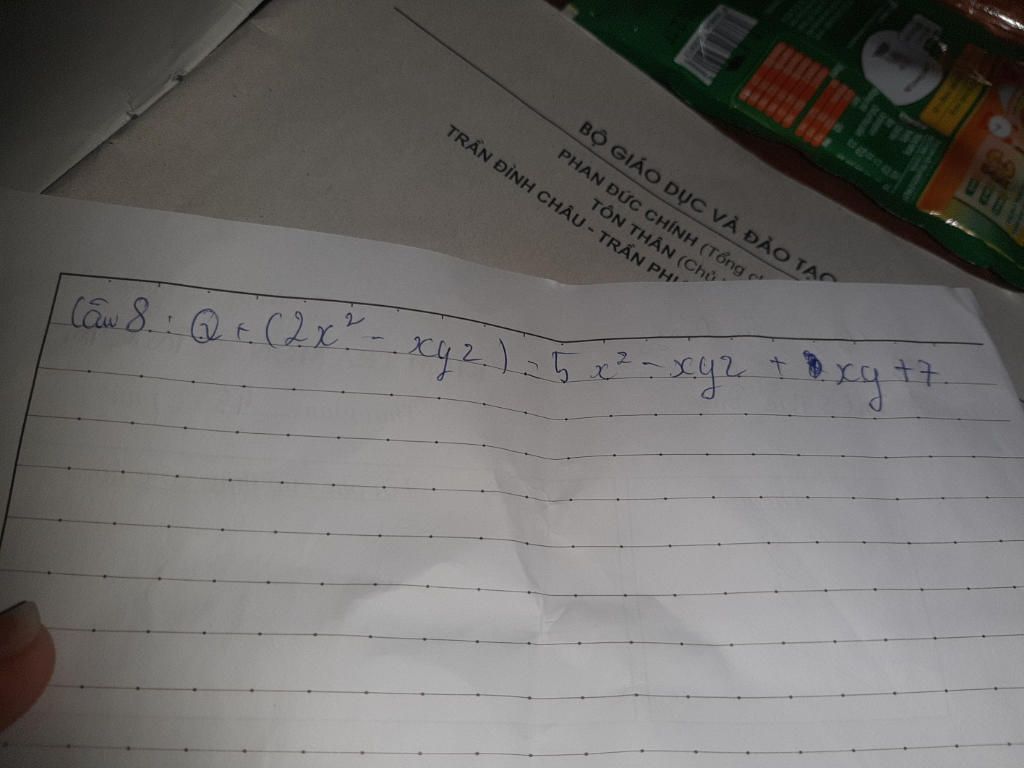 BỘ GIÁO DỤC VÀ ĐÀO TẠO
PHAN ĐỨC CHÍNH (Tổng
TÔN THÂN (Chủ
TRẦN ĐÌNH CHÂU - TRẦN
Câu 8 : Q + (2x² - xyz) = 5x² - xyz + xy + 7